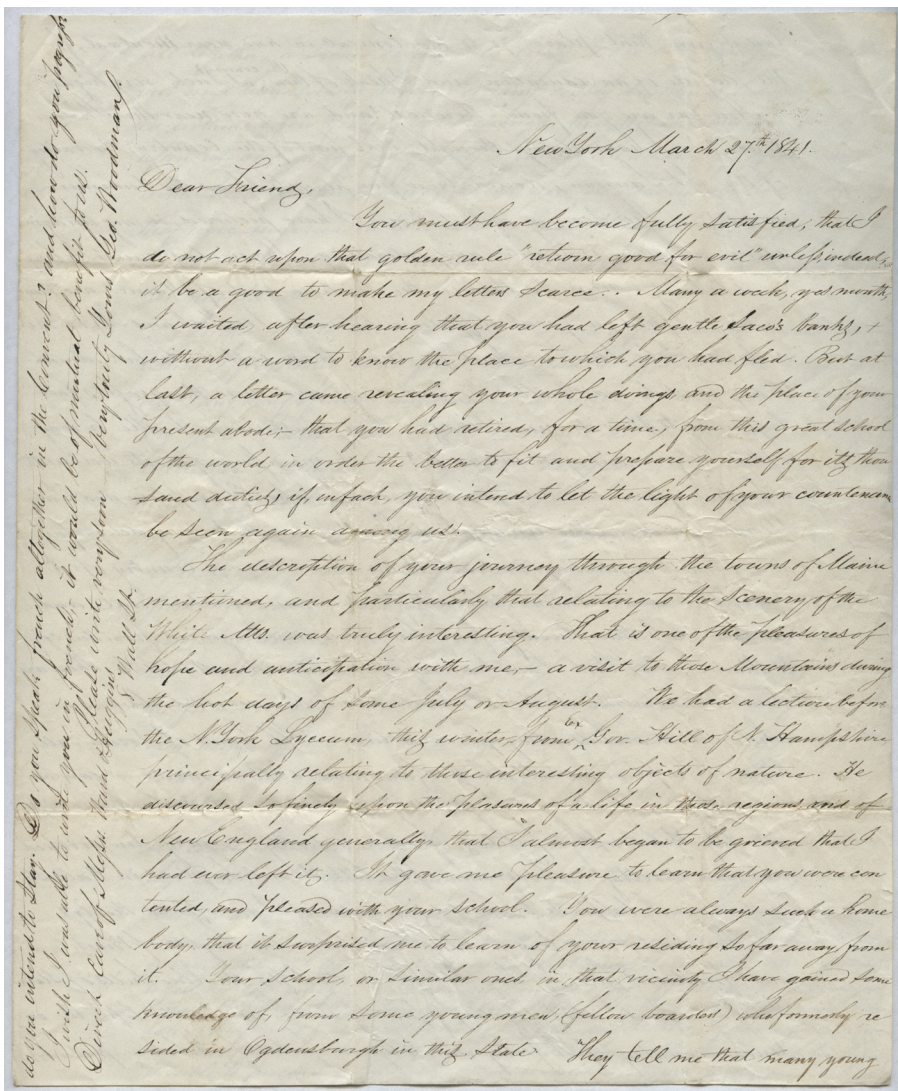 New York March 27th 1841.
Dear Friend,
You must have become fully satisfied, that I
do not act upon that golden rule "return good for evil" unless indeed,
it be a good to make my letters scarce. Many a week, yes month,
I waited, after hearing that you had left gentle Saco's banks, +
without a word to know the place to which you had fled. But at
last, a letter came revealing your whole doings and the place of your
present abode;– that you had retired, for a time, from this great school
of the world in order the better to fit and prepare yourself for its thou
sand duties, if, in fact, you intend to let the light of your countenance
be seen again among us.
The description of your journey through the towns of Maine
mentioned, and particularly that relating to the scenery of the
White Mts. was truly interesting. That is one of the pleasures of
hope and anticipation with me,– a visit to those Mountains during
the hot days of some July or August. We had a lecture before
the N. York Lyceum, this winter, from Ex Gov. Hill of N. Hampshire
principally relating to those interesting objects of nature. He
discoursed so finely upon the pleasures of a life in those regions and of
New England generally, that I almost began to be grieved that I
had ever left it. It gave me pleasure to learn that you were con
tented, and pleased with your school. You were always such a home
body, that it surprised me to learn of your residing so far away from
it. Your school, or similar ones in that vicinity I have gained some
knowledge of, from some young men (fellow boarders) who formerly re
sided in Ogdensburgh in this State. They tell me that many young
do you intend to stay. Do you speak french altogether in the Convent? and how do you progress
I wish I was able to write you in french,– it would be of mutual benefit to us.
Please write very soon Very truly Yours Geo. Woodman.
Direct Care of Messrs. Wand Higgins
Wall St.